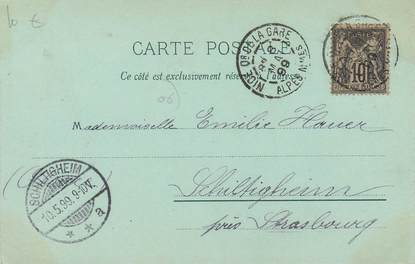 10 €
CARTE POSTALE
Ce côté est exclusivement réservé à l'adresse
NICE Qr DE LA GARE
8 MAI 99
ALPES MMES
10
Mademoiselle Emilie Hauer
Schiltigheim
près Strasbourg
SCHILTIGHEIM
10.5.99.9-10V.
a